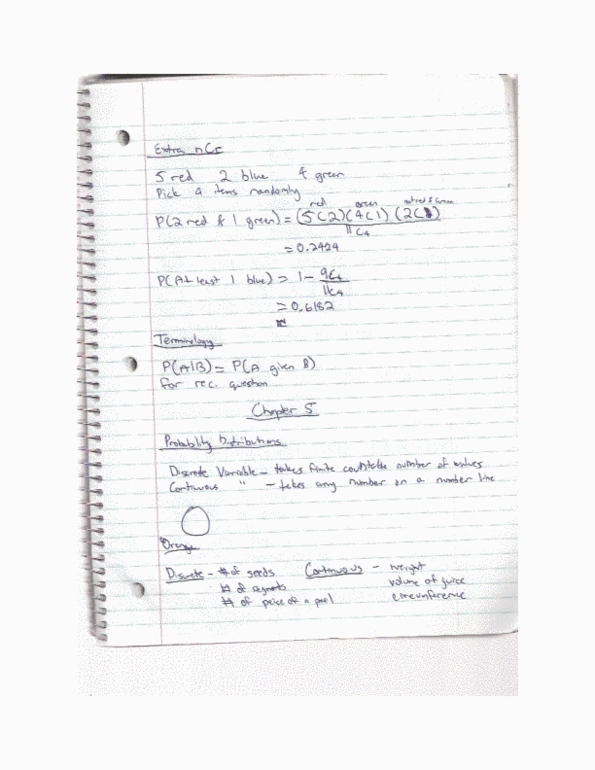 Extra nCr
5 red 2 blue 4 green
Pick 4 items randomly
red green not red & Green
P(2 red & 1 green) = (5C2)(4C1)(2C1)
11C4
= 0.2424
P(At least 1 blue) = 1 - 9C4
11C4
= 0.6182
Terminology
P(A|B) = P(A given B)
for rec. question
Chapter 5
Probability Distributions
Discrete Variable - takes finite countable number of values
Continuous " - takes any number on a number line
Orange
Discrete - # of seeds Continuous - weight
# of segments volume of juice
# of peice of a peel circumference